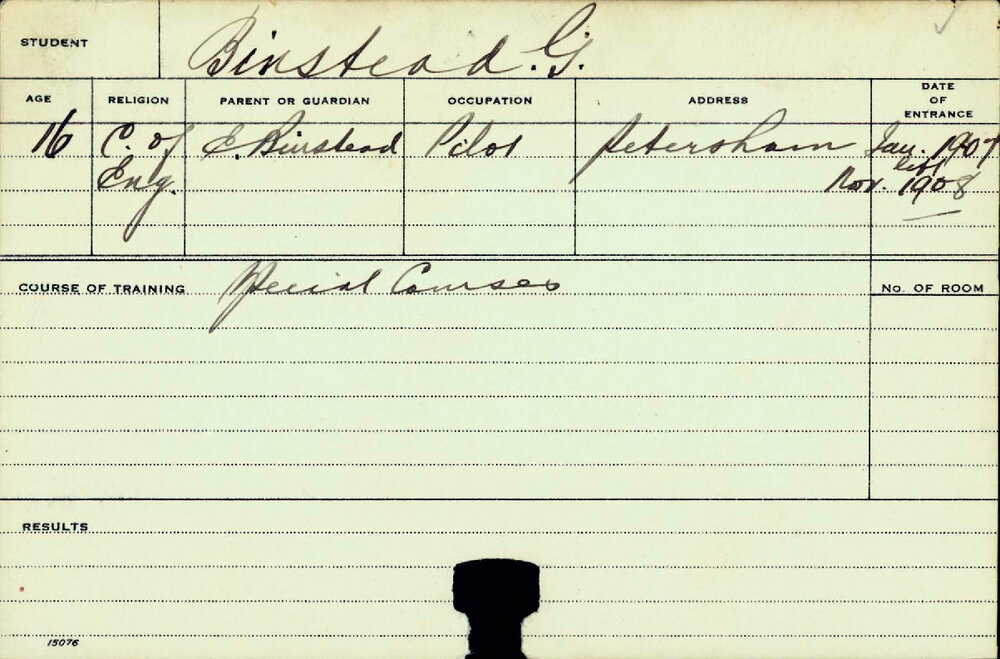 STUDENT Binstead. G.
AGE RELIGION PARENT OR GUARDIAN OCCUPATION ADDRESS DATE OF ENTRANCE
16 C. of E. Binstead Pilot Petersham Jan. 1907
Eng. left
Nov. 1908
COURSE OF TRAINING Special Courses No. OF ROOM
RESULTS
15076